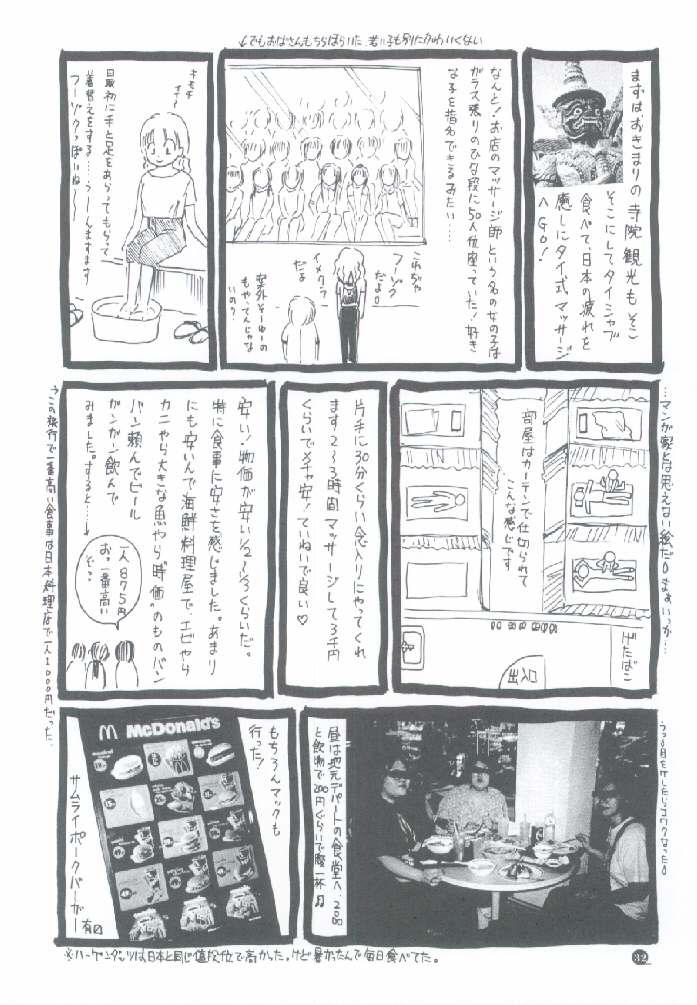 ↓でもおばさんもちらほらいた。若い子も別にかわいくない
まずはおきまりの寺院観光もそこ
そこにしてタイシャブ
食べて、日本の疲れを
癒しにタイ式マッサージ
へGO!
なんと!お店のマッサージ師という名の女の子は
ガラス張りのひな段に50人位座っていた!好き
な子を指名できるみたい…
これじゃ
フーゾク
だよ。
イメクラ
だよ
案外そーゆーの
もやってんじゃな
いの?
キモチ
イイ〜
最初に手と足をあらってもらって
着替えをする…うーんますます
フーゾクっぽいね〜
…マンガ家とは思えない絵だ。まぁいっか…
部屋はカーテンで仕切られて
こんな感じです
げたばこ
出入口
片手に30分くらい念入りにやってくれ
ます2〜3時間マッサージして3千円
くらいでメチャ安!ていねいで良い♡
安い!物価が安い1/2〜1/3くらいだ。
特に食事に安さを感じました。あまり
にも安いんで海鮮料理屋で、エビやら
カニやら大きな魚やら"時価"のものバン
バン頼んでビール
ガンガン飲んで
みました。すると…→
一人875円
お。一番高い
ぞっ
この旅行で一番高い食事は日本料理店で一人1000円だった。
昼は地元デパートの食堂へ200
と飲物で200円ぐらいで腹一杯♫
もちろんマックも
行った!
McDonald's
サムライポークバーガー
有り
※ハーゲンダッツは日本と同じ値段位で高かった。けど暑かったんで毎日食べてた。
32